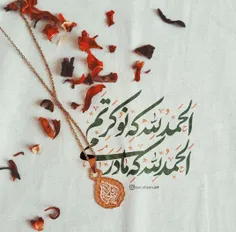 الحمدلله که نوکرتم
الحمدلله که مادر